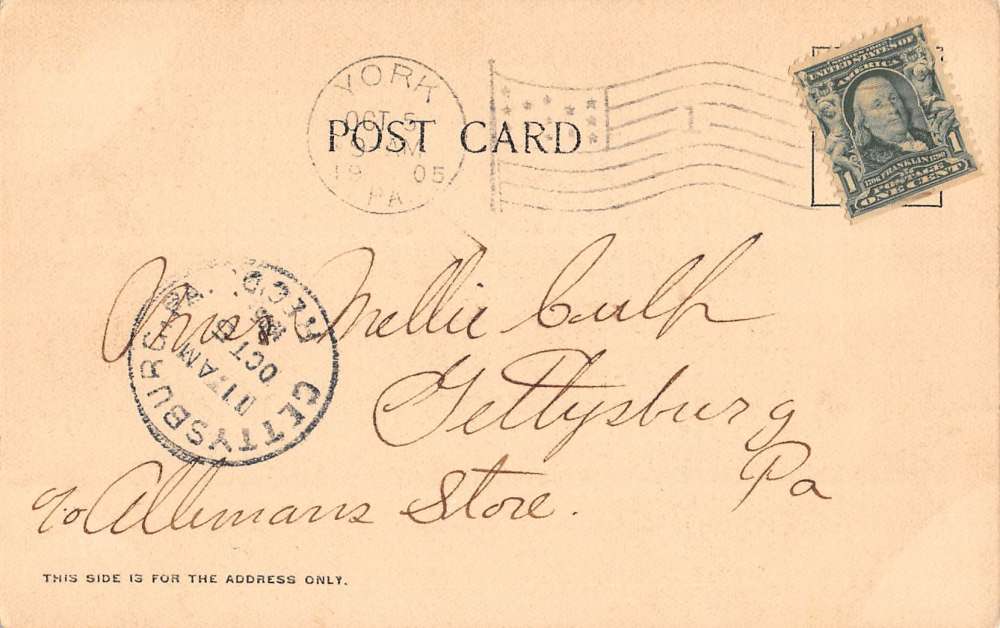 YORK
OCT 5
AM
19 05
PA
POST CARD
1
SERIES 1902
UNITED STATES OF
AMERICA
1706 FRANKLIN 1790
POSTAGE
1 ONE CENT 1
Miss Nellie Culp
Gettysburg
Pa
c/o Allemans Store.
GETTYSBURG PA. REC'D.
OCT
11 AM
THIS SIDE IS FOR THE ADDRESS ONLY.